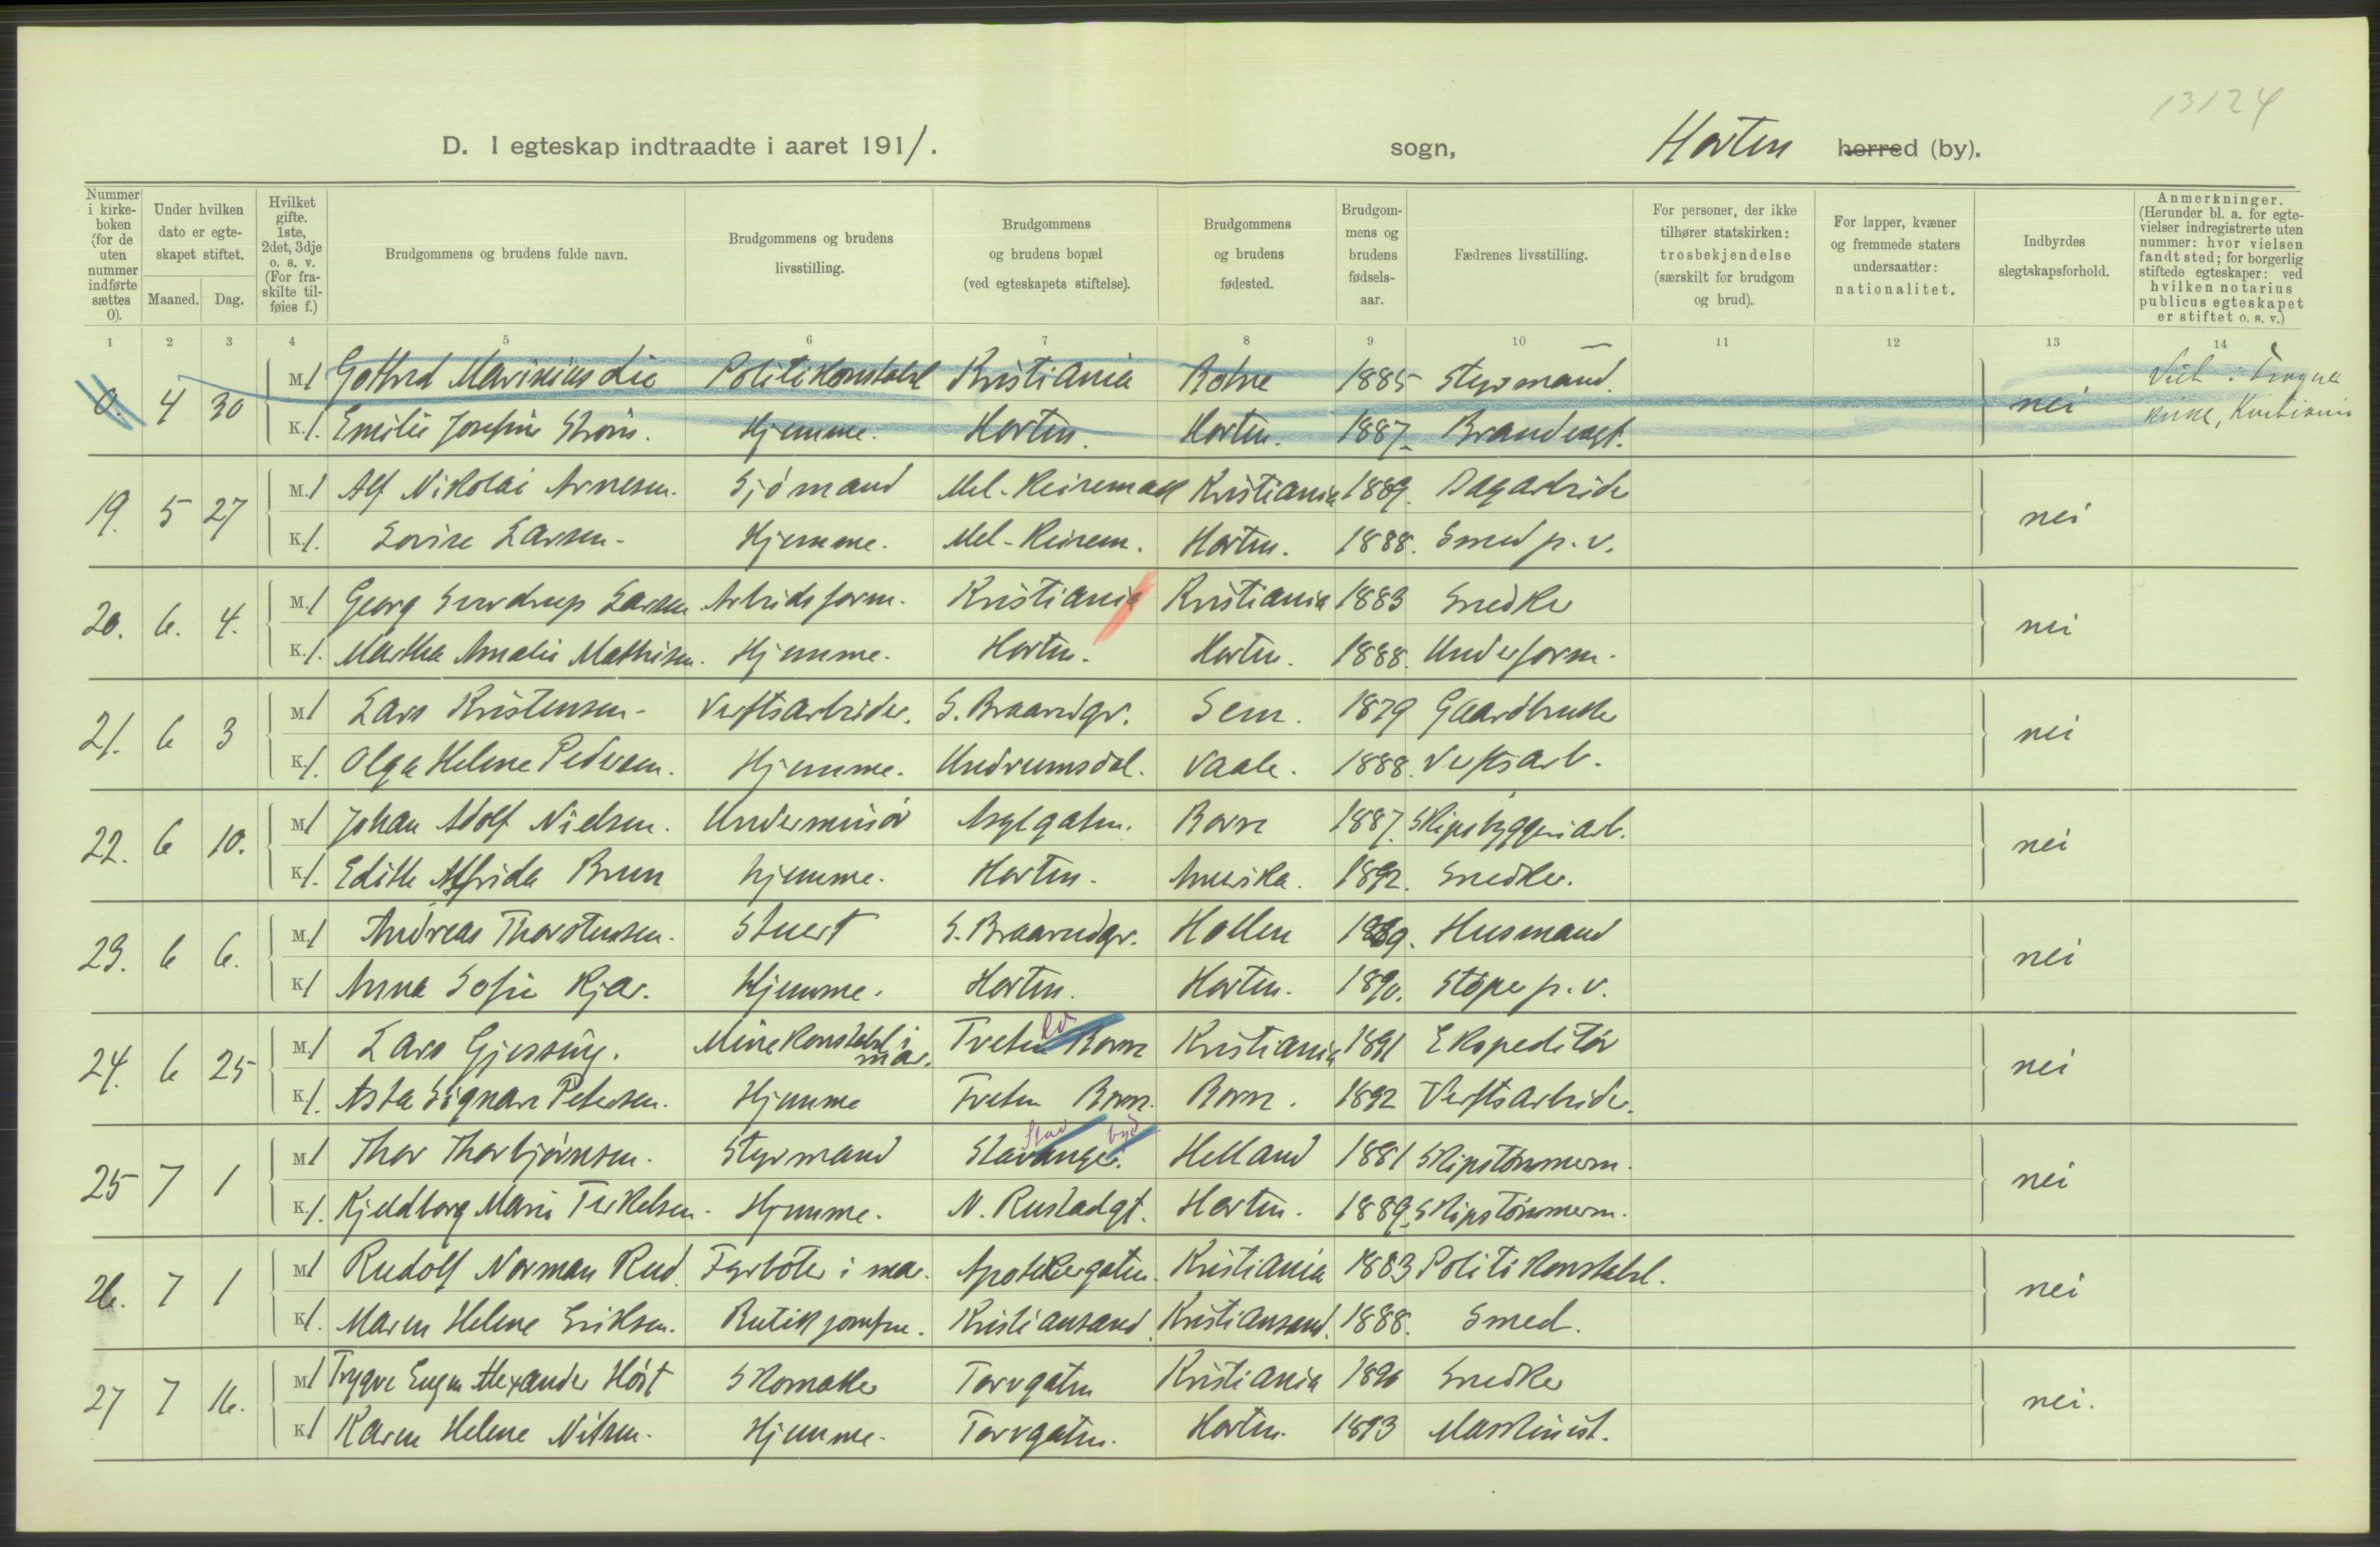 13124
D. I egteskap indtraadte i aaret 1911. sogn, Horten herred (by).
Nummer i kirkeboken (for de uten nummer indførte sættes 0).
Under hvilken dato er egteskapet stiftet.
Maaned. Dag.
Hvilket gifte. 1ste, 2det, 3dje o. s. v. (For fraskilte tilføies f.)
Brudgommens og brudens fulde navn.
Brudgommens og brudens livsstilling.
Brudgommens og brudens bopæl (ved egteskapets stiftelse).
Brudgommens og brudens fødested.
Brudgommens og brudens fødselsaar.
Fædrenes livsstilling.
For personer, der ikke tilhører statskirken: trosbekjendelse (særskilt for brudgom og brud).
For lapper, kvæner og fremmede staters undersaatter: nationalitet.
Indbyrdes slegtskapsforhold.
Anmerkninger. (Herunder bl. a. for egtevielser indregistrerte uten nummer: hvor vielsen fandt sted; for borgerlig stiftede egteskaper: ved hvilken notarius publicus egteskapet er stiftet o. s. v.)
1 2 3 4 5 6 7 8 9 10 11 12 13 14
0. 4 30 M. 1 Gothard Marinius Lie Politikonstabel Kristiania 1885 Styrmand. nei
K. 1. Emilie Josefine Strøm. Hjemme. Horten. Horten. 1887. Brandvagt. Kirke, Kristiania
19. 5 27 M. 1 Alf Nikolai Arnesen. Sjømand Kristiania 1889. Dagarbeider nei
K. 1. Lovise Larsen. Hjemme. Horten. 1888. Smed p. v.
20. 6. 4. M. 1 Georg Sverdrup Larsen Arbeidsform. Kristiania Kristiania 1883 Snedker nei
K. 1. Martha Amalie Mathisen. Hjemme. Horten. Horten. 1888. Underform.
21. 6 3 M. 1 Lars Kristensen. Verftsarbeider. S. Braarudgt. Sem. 1879 Gaardbruker nei
K. 1. Olga Helene Pedersen. Hjemme. Undrumsdal. Vaale. 1888. Verftsarb.
22. 6 10. M. 1 Johan Adolf Nielsen. Underminør Asylgaten. Borre 1887. Skipsbyggeriarb. nei
K. 1. Edith Alfrida Brun hjemme. Horten. Amerika. 1892. Snedker.
23. 6 6. M. 1 Andreas Thorstensen. Stuert S. Braarudgt. Hollen 1889. Husmand nei
K. 1 Anna Sofie Kjær. Hjemme. Horten. Horten. 1890. Støper p. v.
24. 6 25 M. 1 Lars Gjessing. Minekonstabel i mar. Tveten Borre Kristiania 1891 Ekspeditør nei
K. 1. Asta Signare Petersen. Hjemme Tveten Borre. Borre. 1892 Verftsarbeider.
25 7 1 M. 1 Thor Thorbjørnsen. Styrmand Stavanger. Helland 1881 Skipstømmerm. nei
K. 1. Kjeldborg Marie Terkelsen. Hjemme. N. Rustadgt. Horten. 1889. Skipstømmerm.
26. 7 1 M. 1 Rudolf Norman Rud. Fyrbøter i mar. Apotekergaten. Kristiania 1883 Politikonstabel. nei
K. 1. Maren Helene Eriksen. Butikjomfru. Kristiansand. Kristiansand. 1888. Smed.
27 7 16. M. 1 Trygve Eugen Alexander Høst Skomaker Torvgaten Kristiania 1890 Snedker nei.
K. 1 Karen Helene Nilsen. Hjemme. Torvgaten. Horten. 1893 Maskinist.